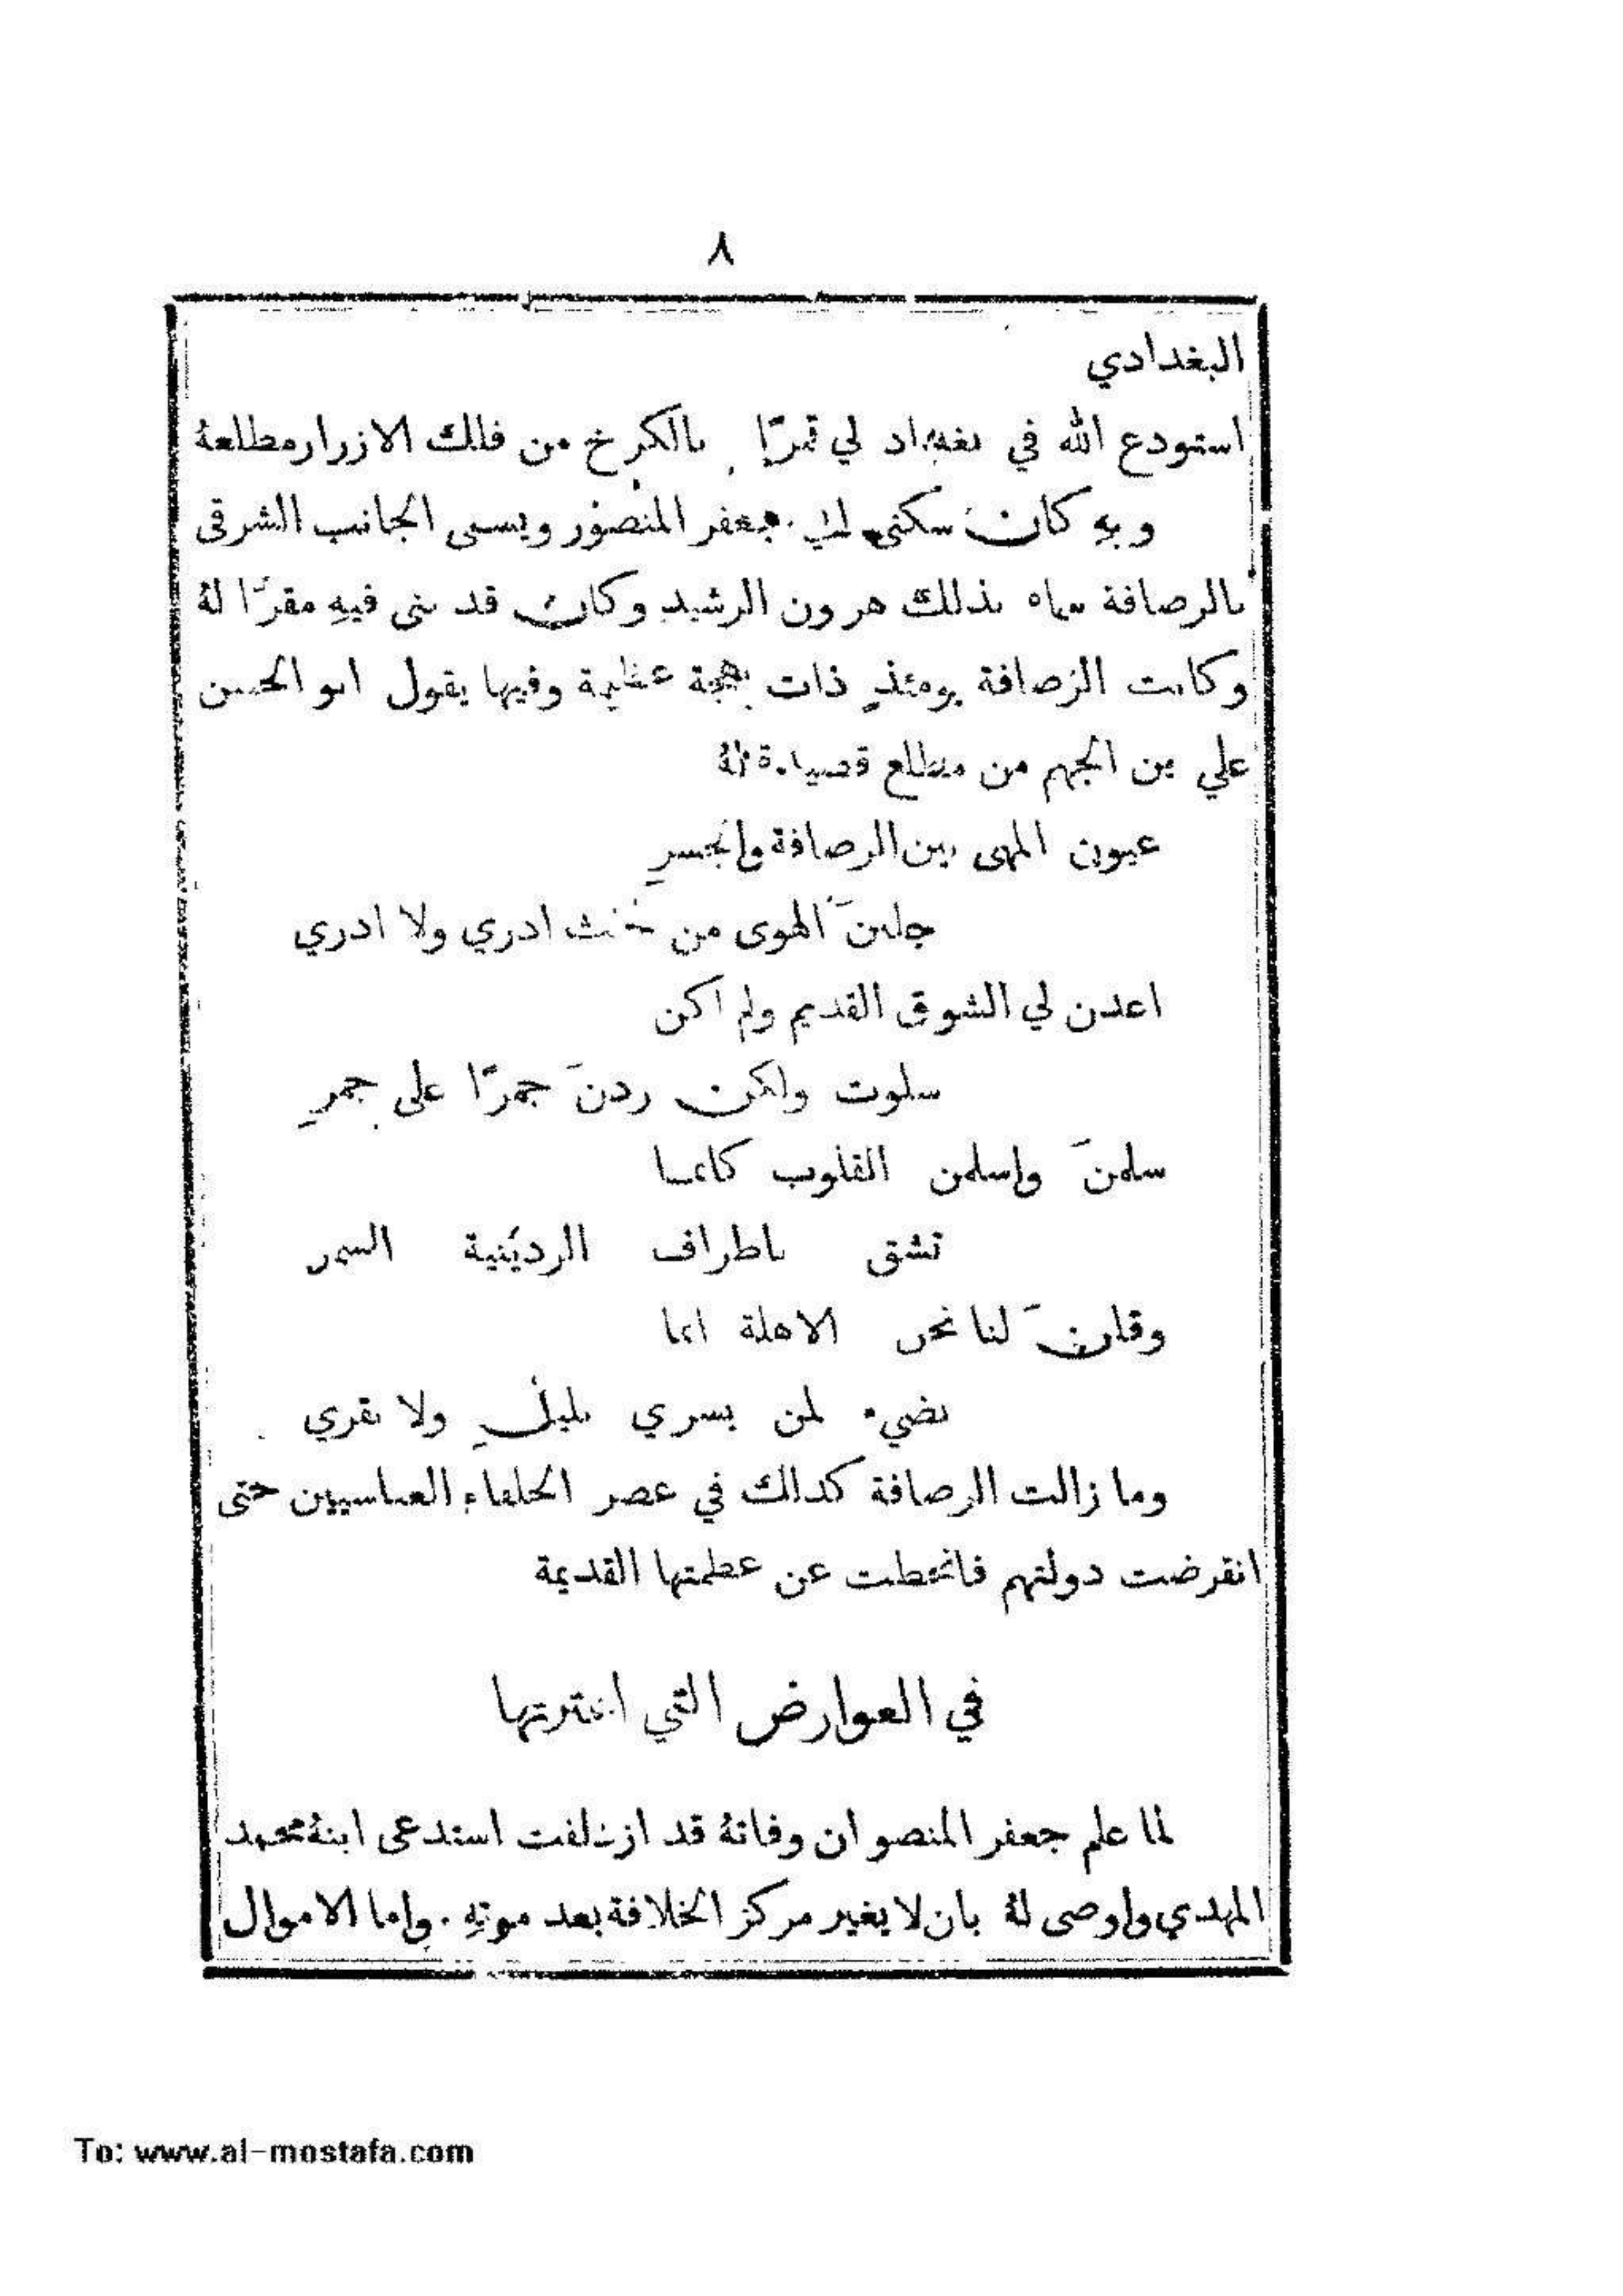 ٨
البغدادي
استودع الله في بغداد لي قمرًا بالكرخ من فلك الازرار مطلعهُ
وبهِ كان سكنى ابي جعفر المنصور ويسمى الجانب الشرقي
بالرصافة سماه بذلك هرون الرشيد وكان قد بنى فيهِ مقرًّا لهُ
وكانت الرصافة يومئذٍ ذات بهجة عظيمة وفيها يقول ابو الحسن
علي بن الجهم من مطلع قصيدة لهُ
عيون المهى بين الرصافة والجسرِ
جلبنَ الهوى من حيث ادري ولا ادري
اعدن لي الشوق القديم ولم اكن
سلوت ولكن زدنَ جمرًا على جمرِ
سلمنَ واسلمن القلوب كانما
تشق باطراف الردينية السمر
وقلنَ لنا نحن الاهلة انما
نضيء لمن يسري بليلٍ ولا نقري
وما زالت الرصافة كذلك في عصر الخلفاء العباسيين حتى
انقرضت دولتهم فانحطت عن عظمتها القديمة
في العوارض التي اعترتها
لما علم جعفر المنصو ان وفاتهُ قد ازدلفت استدعى ابنهُ محمد
المهدي واوصى لهُ بان لا يغير مركز الخلافة بعد موتهِ . واما الاموال
To: www.al-mostafa.com